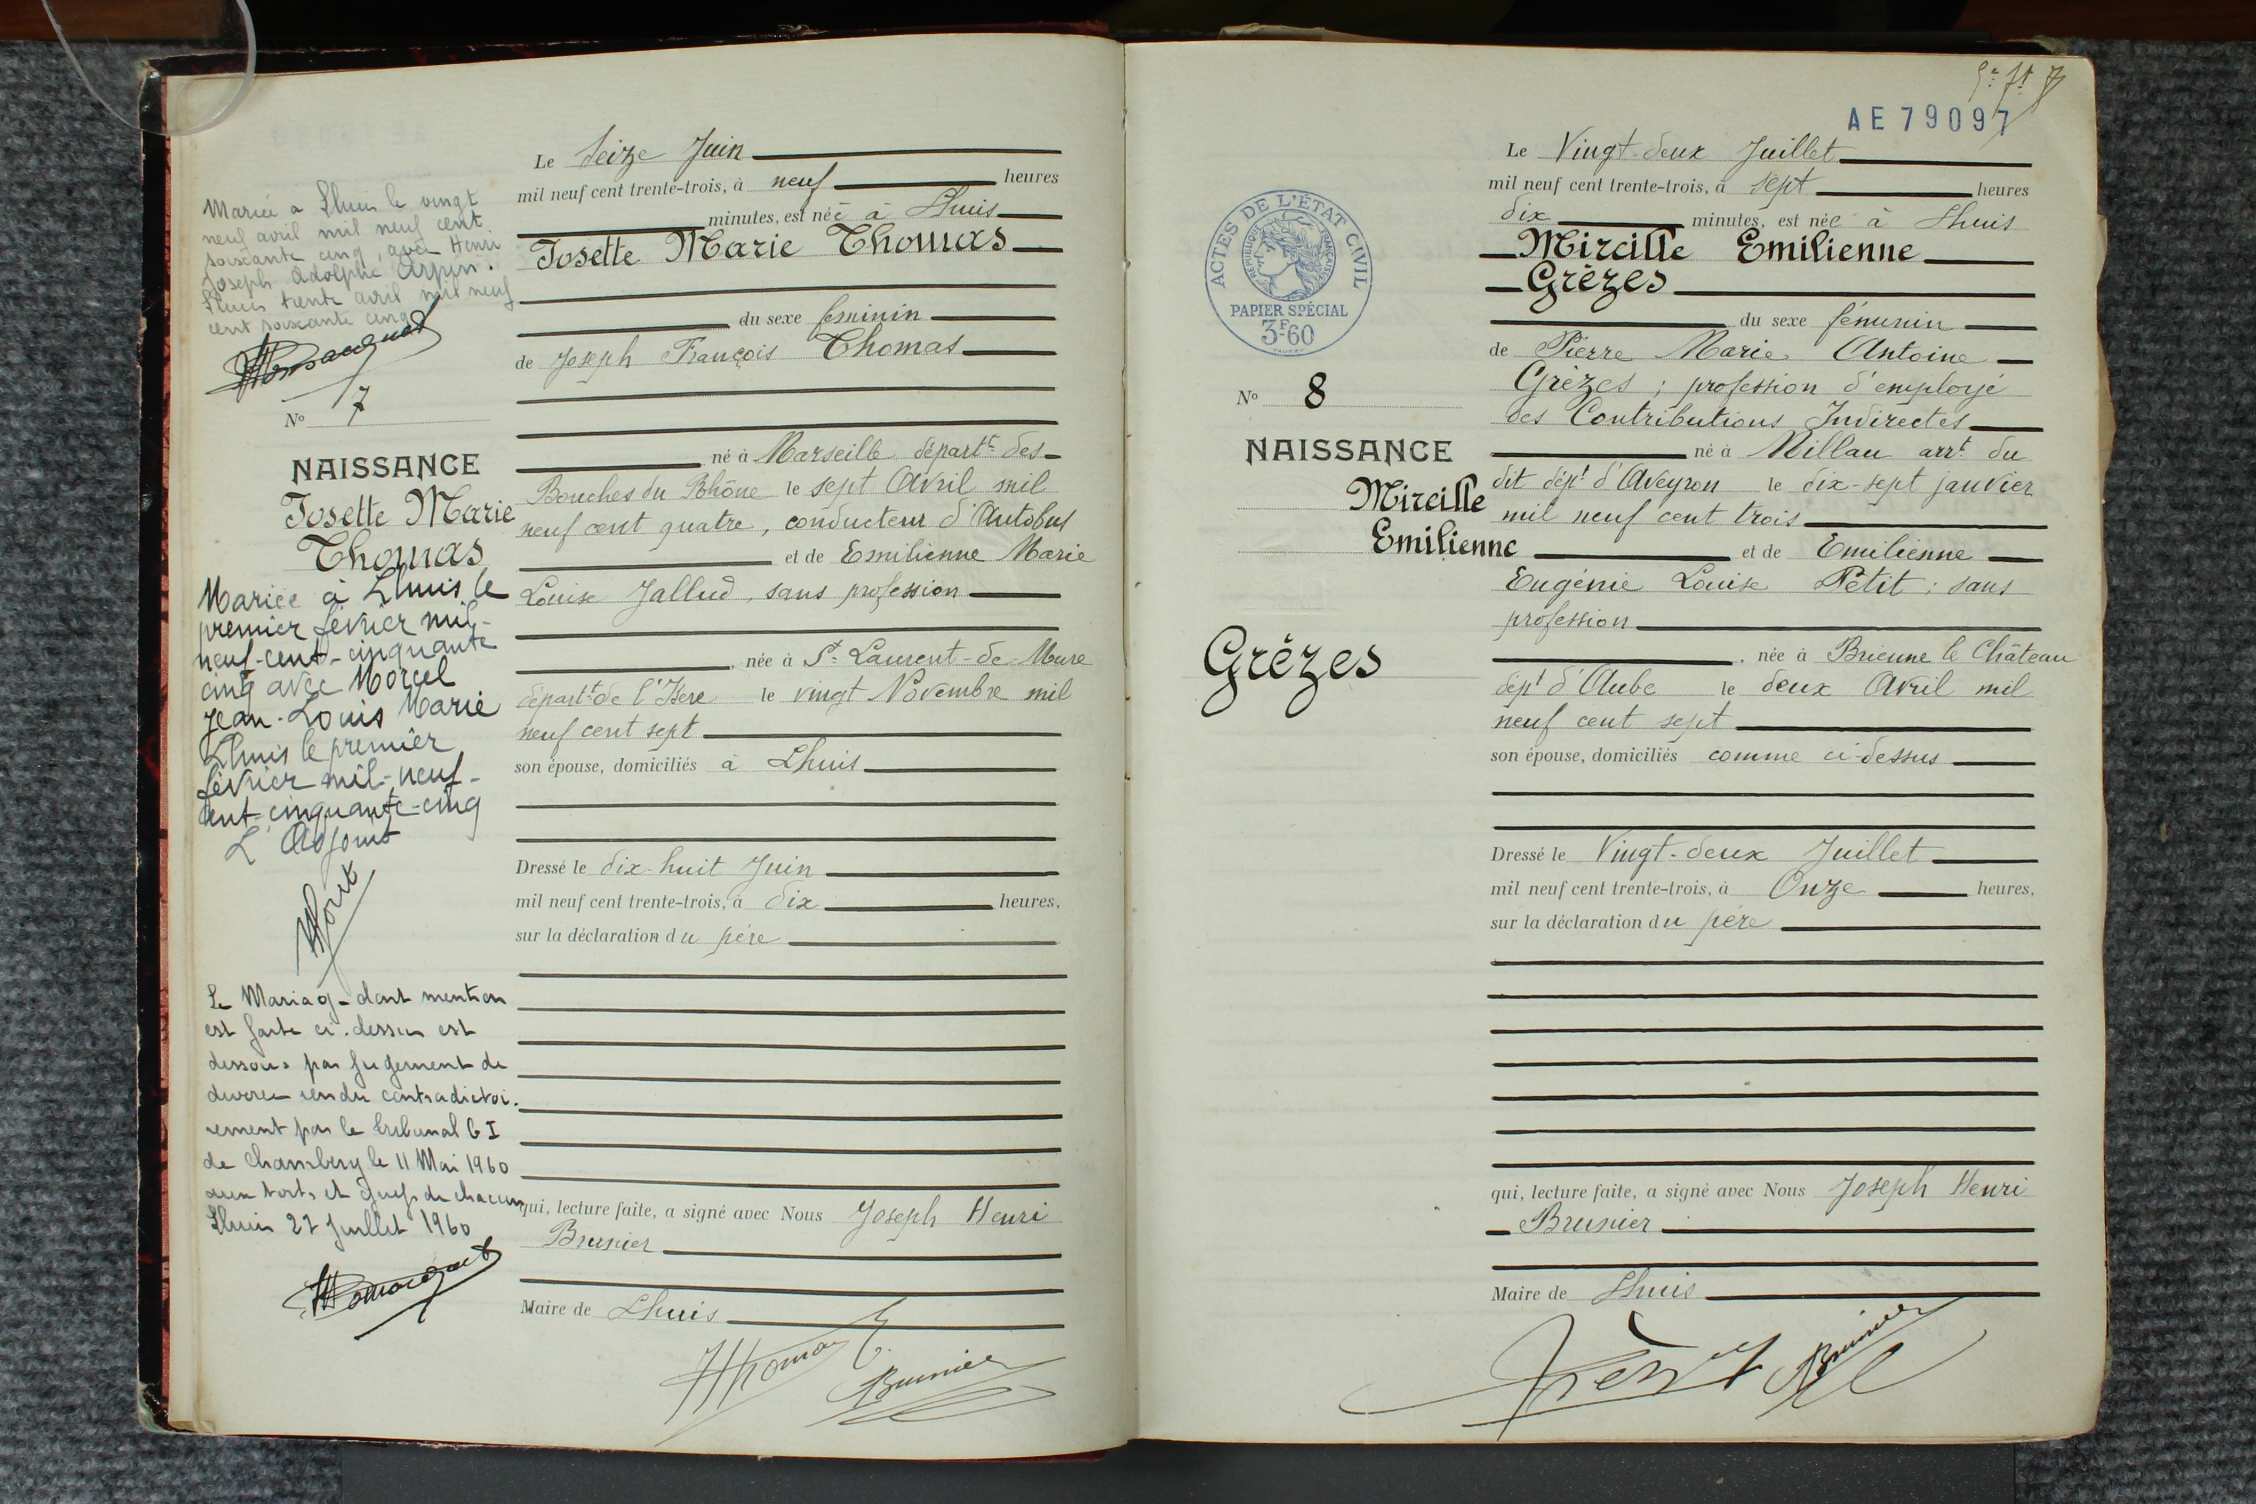 Mariée a Lhuis le vingt
neuf avril mil neuf cent
soixante cinq, avec Henri
Joseph Adolphe Arpin.
Lhuis trente avril mil neuf
cent soixante cinq
No 7
NAISSANCE
Josette Marie
Thomas
Mariée à Lhuis le
premier février mil-
neuf-cent-cinquante
cinq avec Marcel
Jean-Louis Marie
Lhuis le premier
février mil-neuf-
cent-cinquante-cinq
L'Adjoint
Le Mariage dont mention
est faite ci-dessus est
dissous par jugement de
divorce rendu contradictoi-
rement par le tribunal G I
de Chambéry le 11 Mai 1960
aux torts et griefs de chacun
Lhuis 27 Juillet 1960
Le Seize Juin
mil neuf cent trente-trois, à neuf heures
minutes, est née à Lhuis
Josette Marie Thomas
du sexe féminin
de Joseph François Thomas
né à Marseille départt des
Bouches du Rhône le sept Avril mil
neuf cent quatre, conducteur d'Autobus
et de Emilienne Marie
Louise Jallud, sans profession
née à St Laurent-de-Mure
départt de l'Isère le vingt Novembre mil
neuf cent sept
son épouse, domiciliés à Lhuis
Dressé le dix-huit Juin
mil neuf cent trente-trois, à dix heures,
sur la déclaration du père
qui, lecture faite, a signé avec Nous Joseph Henri
Brunier
Maire de Lhuis
JThomas
Brunier
AE 79097
ACTES DE L'ÉTAT CIVIL
RÉPUBLIQUE FRANÇAISE
PAPIER SPÉCIAL
3F60
No 8
NAISSANCE
Mireille
Emilienne
Grèzes
Le Vingt-deux Juillet
mil neuf cent trente-trois, à sept heures
dix minutes, est née à Lhuis
Mireille Emilienne
Grèzes
du sexe féminin
de Pierre Marie Antoine
Grèzes ; profession d'employé
des Contributions Indirectes
né à Millau arrt du
dit dépt d'Aveyron le dix-sept janvier
mil neuf cent trois
et de Emilienne
Eugénie Louise Petit ; sans
profession
, née à Brienne le Château
dépt d'Aube le deux Avril mil
neuf cent sept
son épouse, domiciliés comme ci-dessus
Dressé le Vingt-deux Juillet
mil neuf cent trente-trois, à Onze heures,
sur la déclaration du père
qui, lecture faite, a signé avec Nous Joseph Henri
Brunier
Maire de Lhuis
Grèzes
Brunier